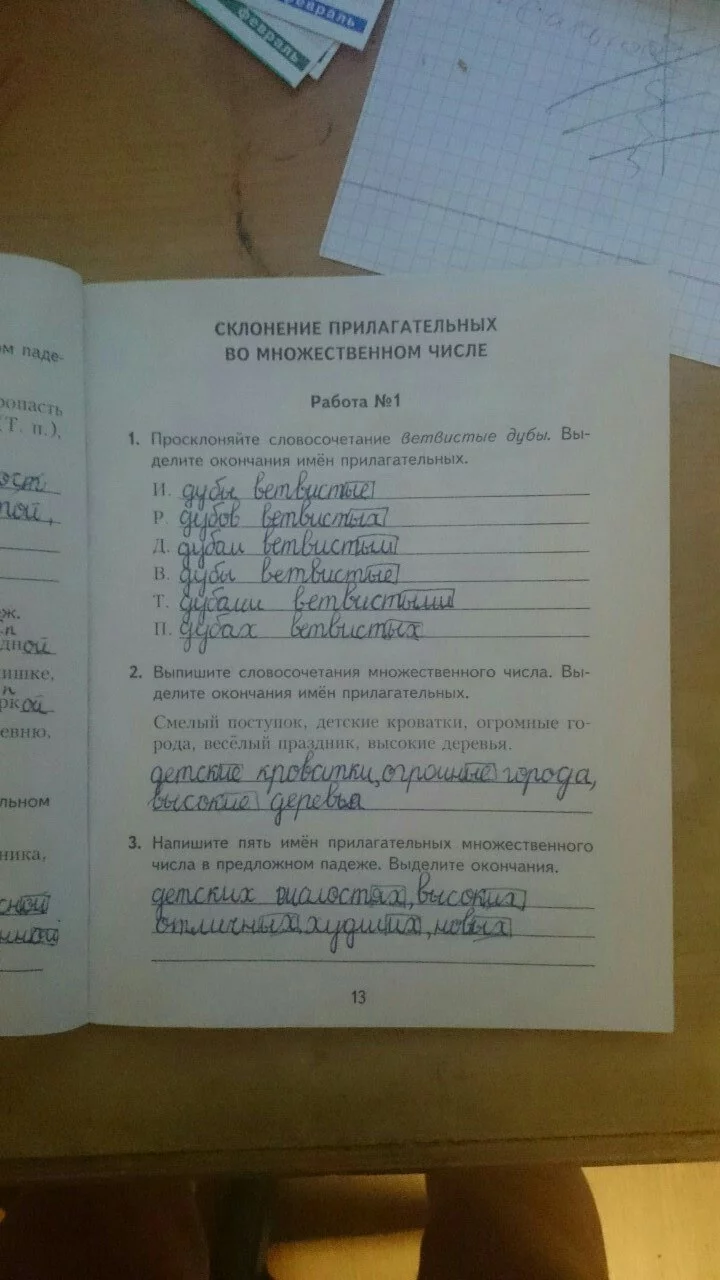 февраль
февраль
СКЛОНЕНИЕ ПРИЛАГАТЕЛЬНЫХ
ВО МНОЖЕСТВЕННОМ ЧИСЛЕ
Работа №1
1. Просклоняйте словосочетание ветвистые дубы. Вы-
делите окончания имён прилагательных.
И. дубы ветвистые
Р. дубов ветвистых
Д. дубам ветвистым
В. дубы ветвистые
Т. дубами ветвистыми
П. дубах ветвистых
2. Выпишите словосочетания множественного числа. Вы-
делите окончания имён прилагательных.
Смелый поступок, детские кроватки, огромные го-
рода, весёлый праздник, высокие деревья.
детские кроватки, огромные города,
высокие деревья
3. Напишите пять имён прилагательных множественного
числа в предложном падеже. Выделите окончания.
детских шалостях, высоких
отличных, худших, новых
13
ом паде-
ропасть
(Т. п.),
ой,
еж.
п
дной
ишке,
п
ркой
евню,
льном
ника,